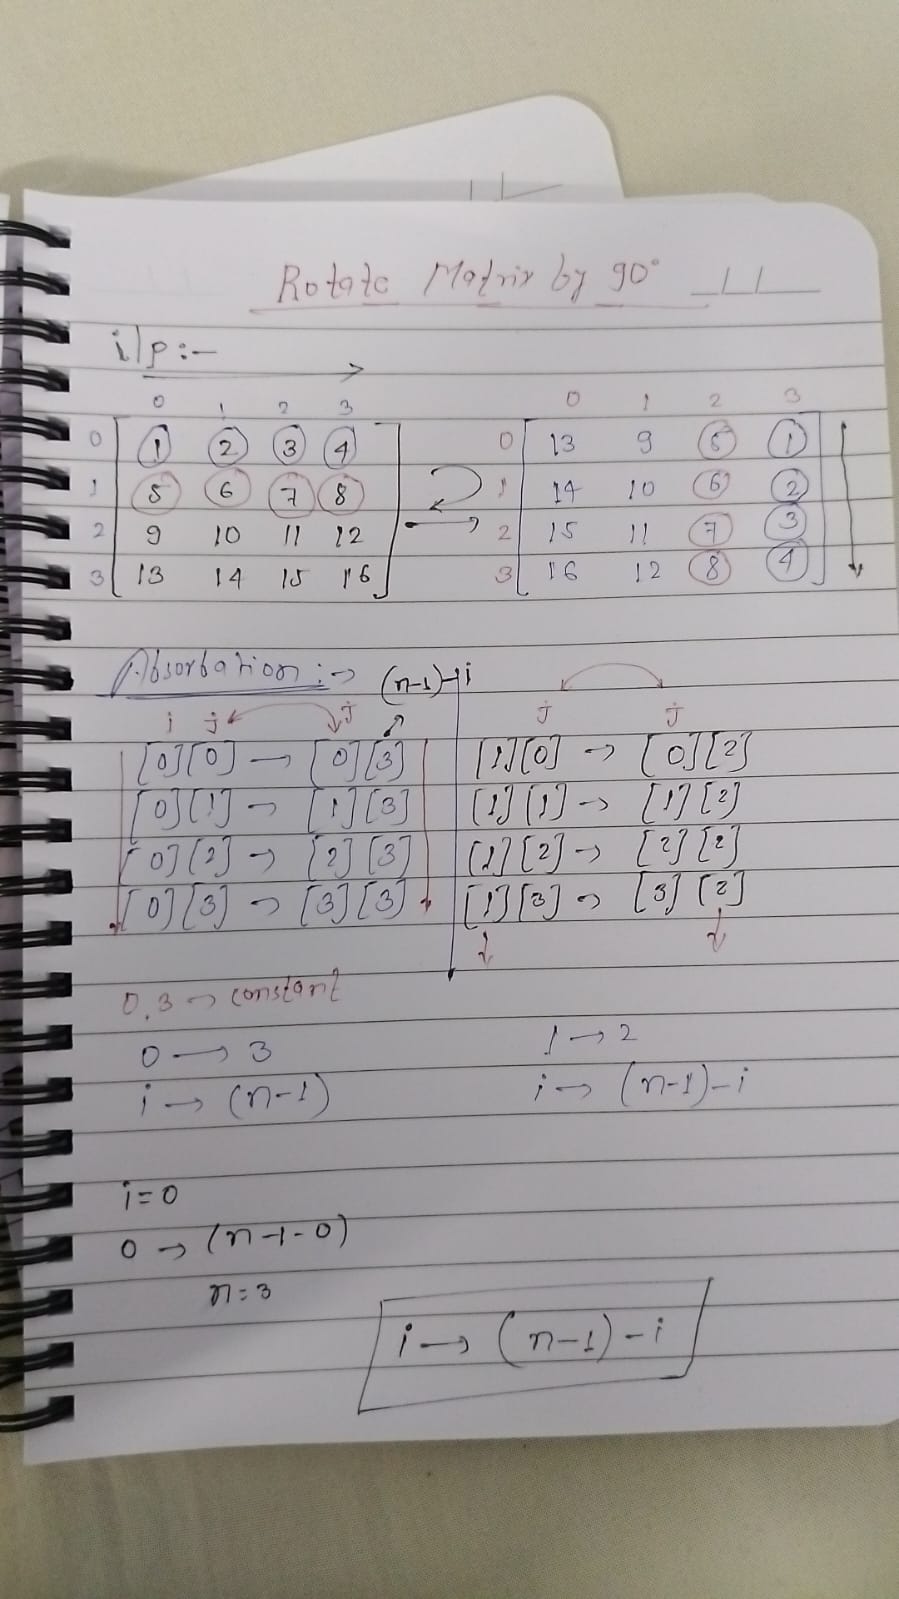 Rotate Matrix by 90°
i/p :-
0 1 2 3
0 1 2 3 4
1 5 6 7 8
2 9 10 11 12
3 13 14 15 16
0 1 2 3
0 13 9 5 1
1 14 10 6 2
2 15 11 7 3
3 16 12 8 4
Absorbation :→ (n-1)-i
i j j
[0][0] → [0][3]
[0][1] → [1][3]
[0][2] → [2][3]
[0][3] → [3][3]
j j
[1][0] → [0][2]
[1][1] → [1][2]
[1][2] → [2][2]
[1][3] → [3][2]
0,3 → constant
0 → 3
i → (n-1)
1 → 2
i → (n-1)-i
i=0
0 → (n-1-0)
n=3
i → (n-1)-i